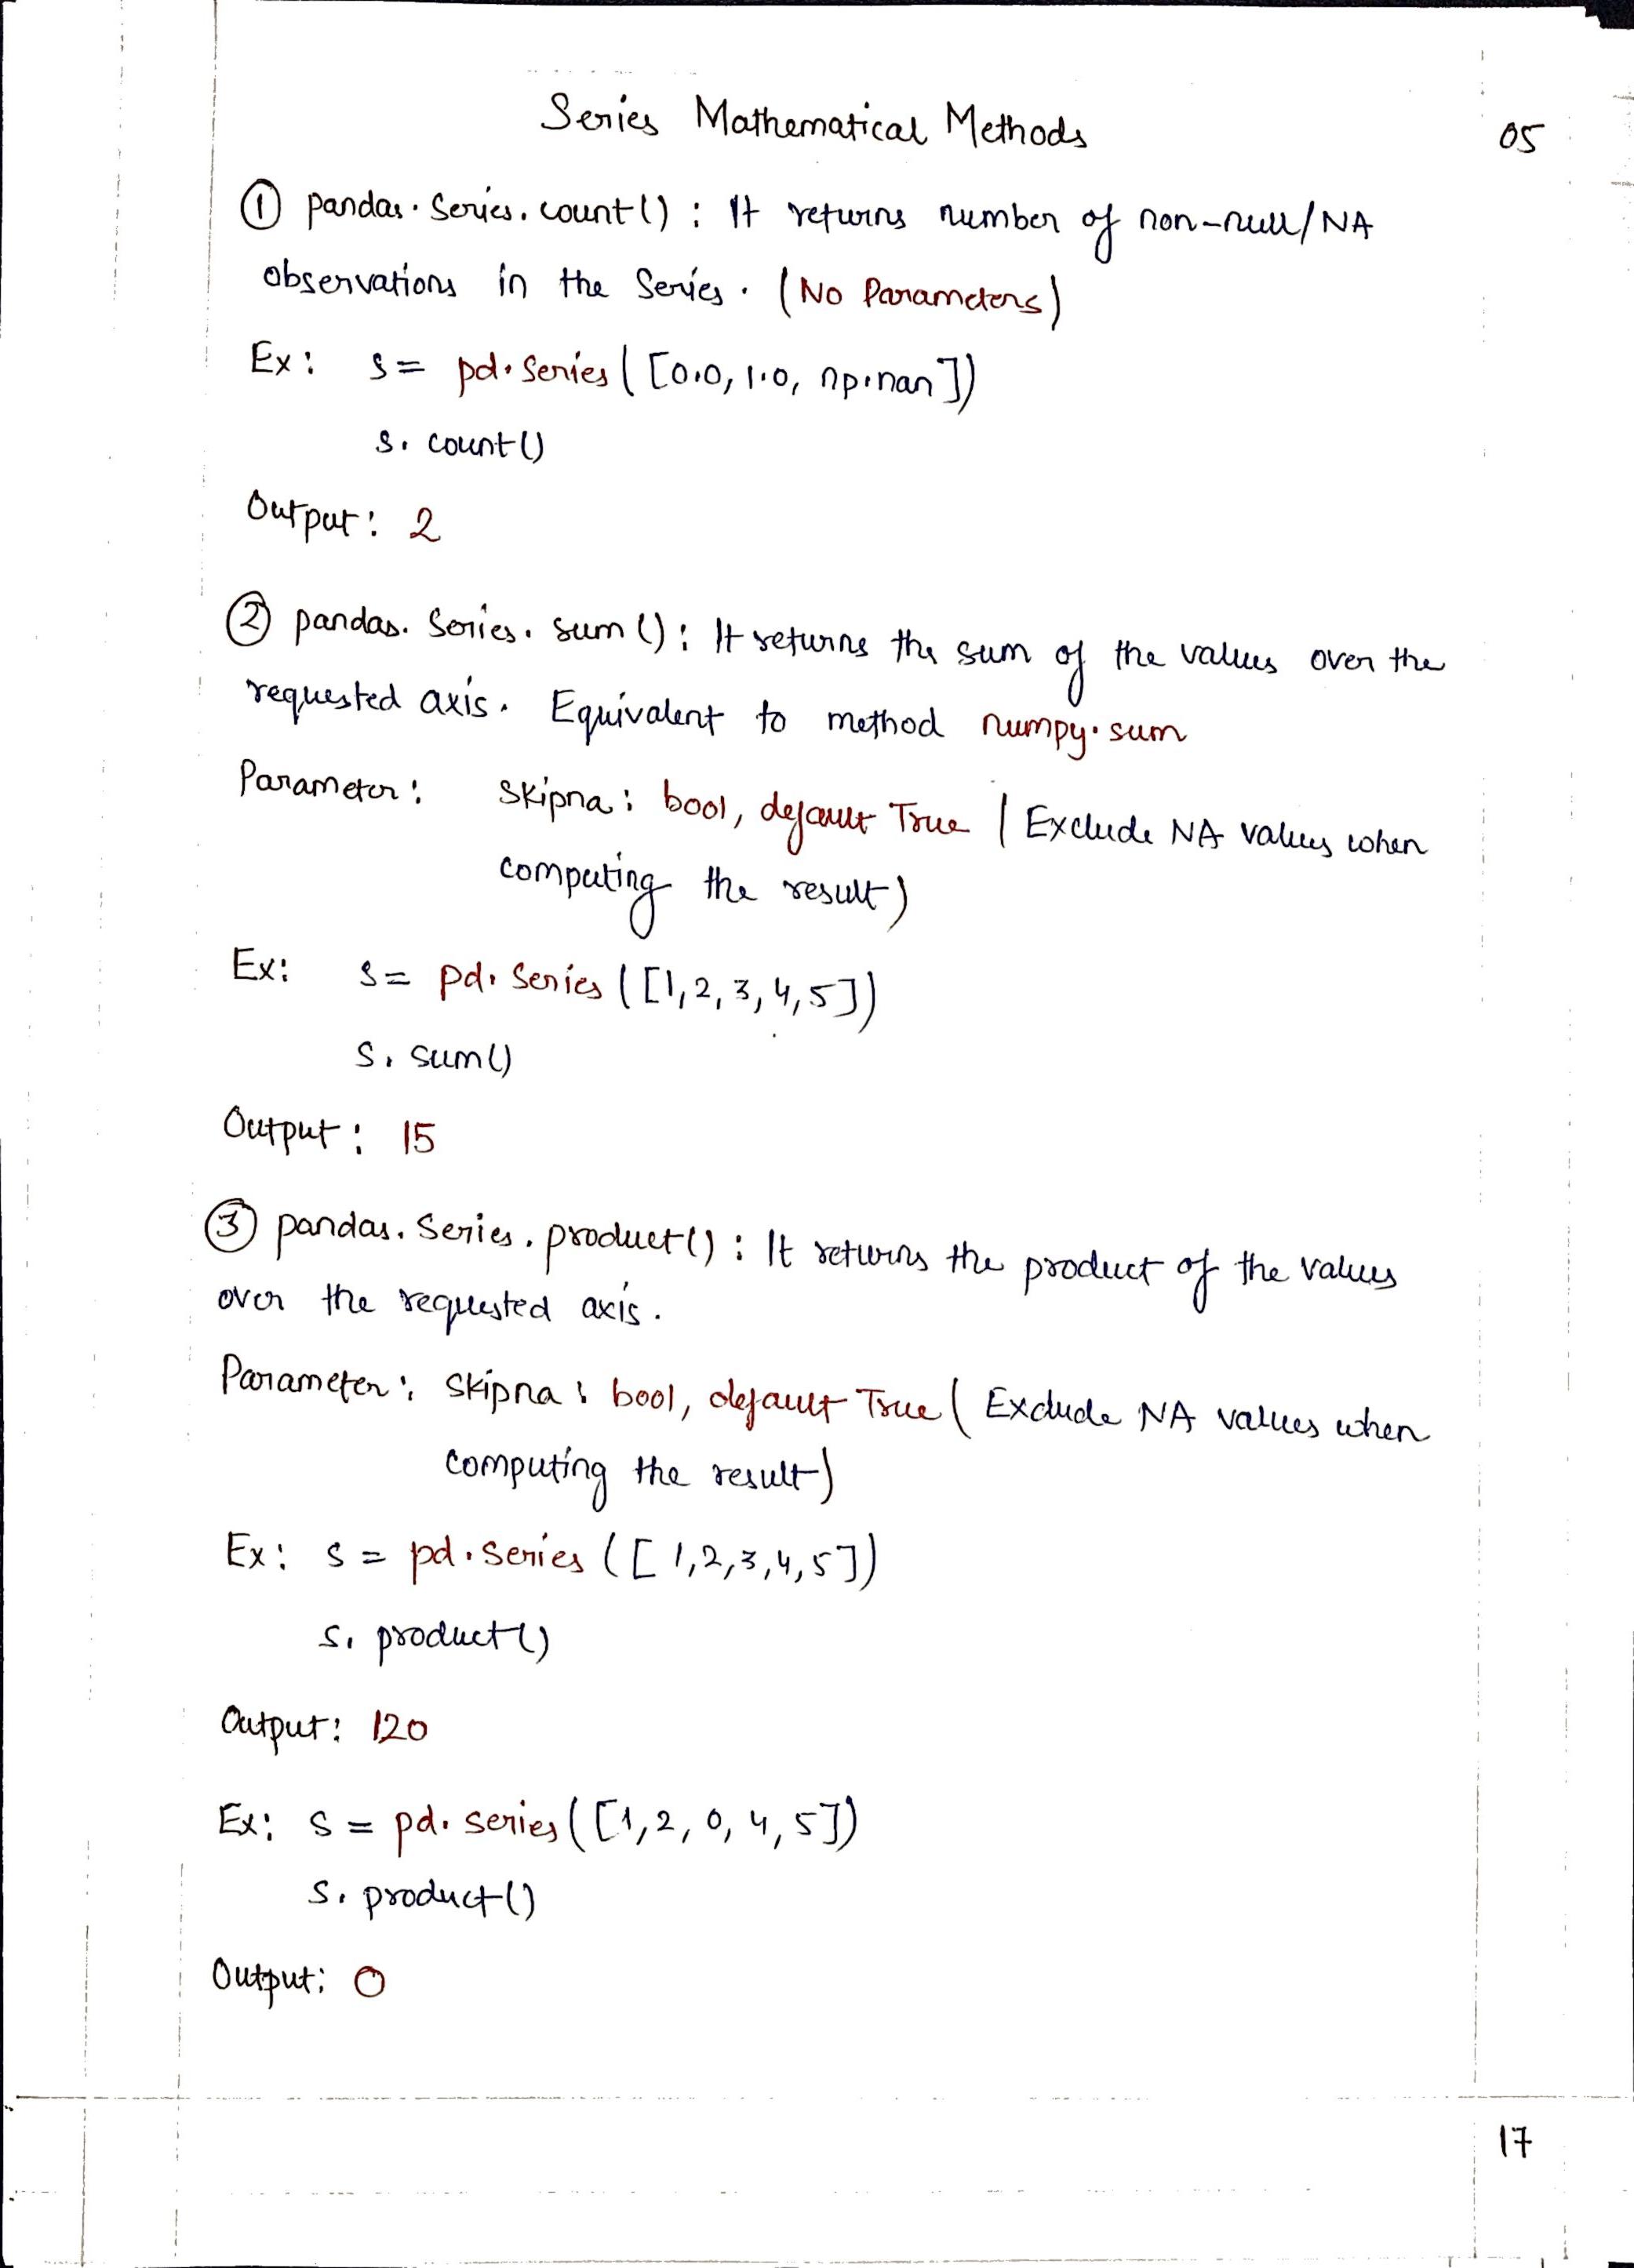 Series Mathematical Methods
05
① pandas.Series.count() : It returns number of non-null/NA
observations in the Series. (No Parameters)
Ex: s = pd.Series([0.0, 1.0, np.nan])
s.count()
Output: 2
② pandas.Series.sum() : It returns the sum of the values over the
requested axis. Equivalent to method numpy.sum
Parameter: skipna: bool, default True (Exclude NA values when
computing the result)
Ex: s = pd.Series([1,2,3,4,5])
s.sum()
Output: 15
③ pandas.Series.product() : It returns the product of the values
over the requested axis.
Parameter: skipna: bool, default True (Exclude NA values when
computing the result)
Ex: s = pd.Series([1,2,3,4,5])
s.product()
Output: 120
Ex: s = pd.Series([1,2,0,4,5])
s.product()
Output: 0
17